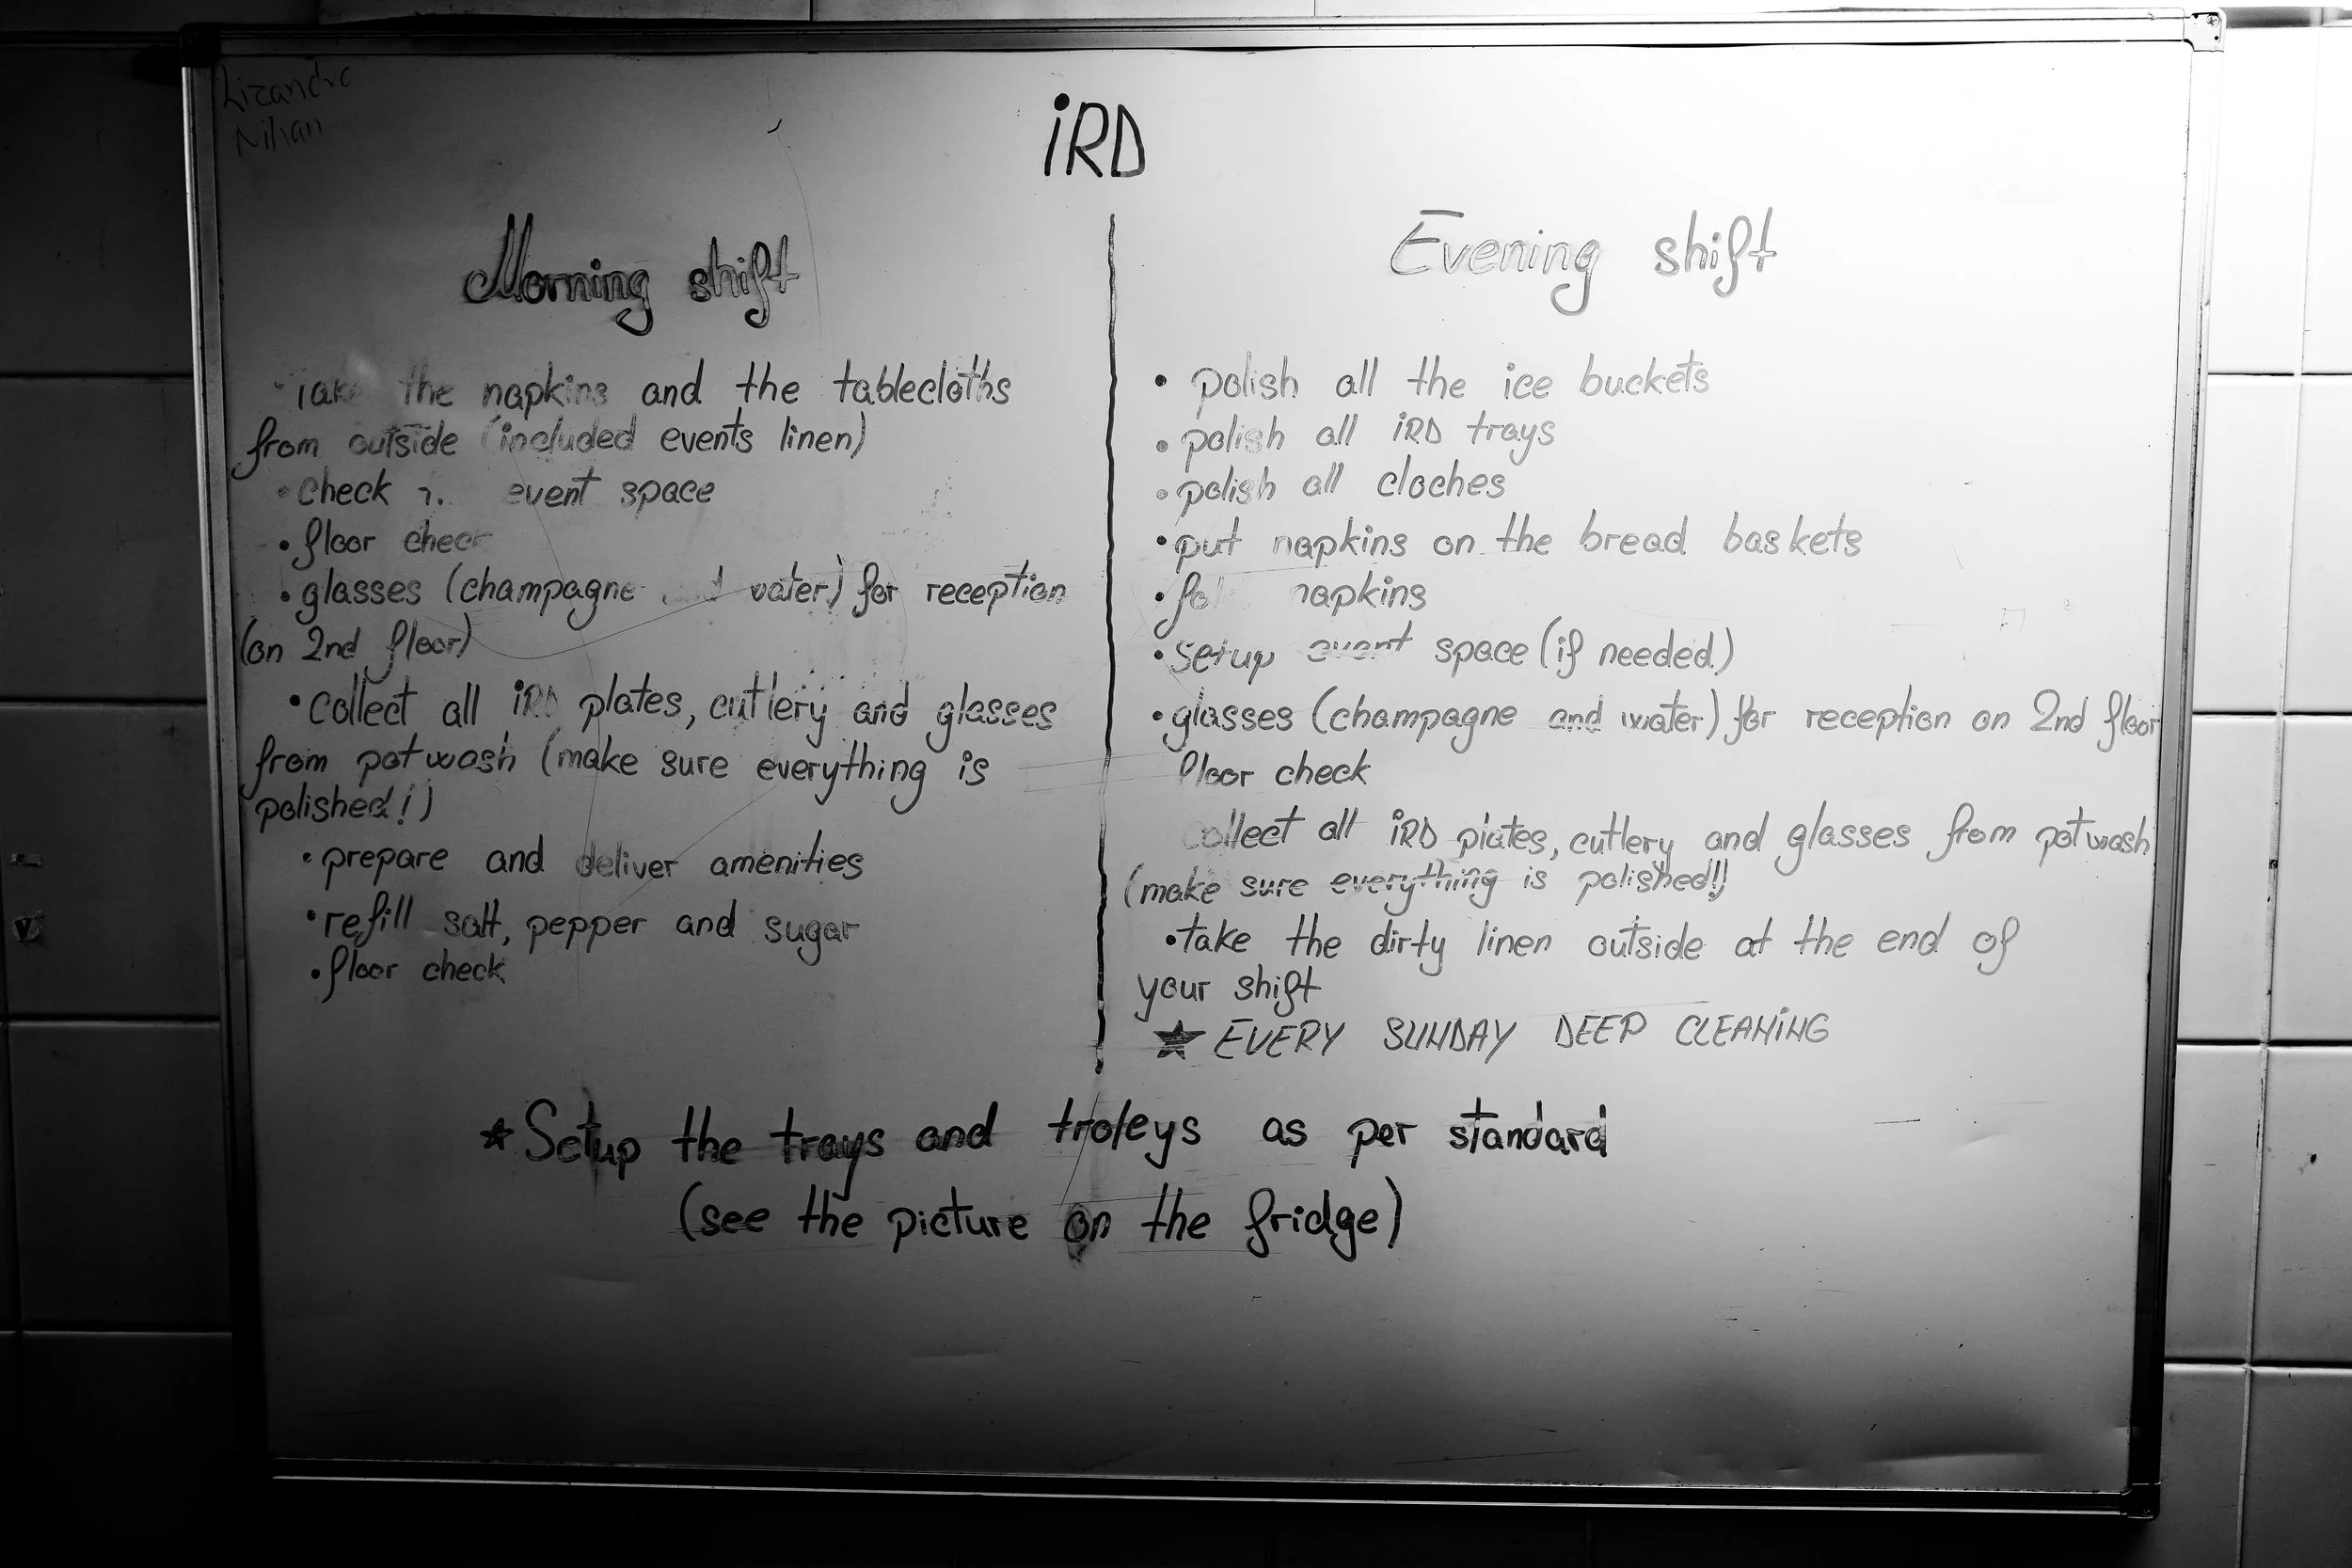 Lizandro
Nihan
iRD
Morning shift
• Take the napkins and the tablecloths
from outside (included events linen)
• check event space
• floor check
• glasses (champagne and water) for reception
(on 2nd floor)
• Collect all iRD plates, cutlery and glasses
from potwash (make sure everything is
polished!)
• prepare and deliver amenities
• refill salt, pepper and sugar
• floor check
Evening shift
• polish all the ice buckets
• polish all iRD trays
• polish all cloches
• put napkins on the bread baskets
• napkins
• setup event space (if needed)
• glasses (champagne and water) for reception on 2nd floor
floor check
Collect all iRD plates, cutlery and glasses from potwash
(make sure everything is polished!!)
• take the dirty linen outside at the end of
your shift
★ EVERY SUNDAY DEEP CLEANING
★ Setup the trays and troleys as per standard
(see the picture on the fridge)